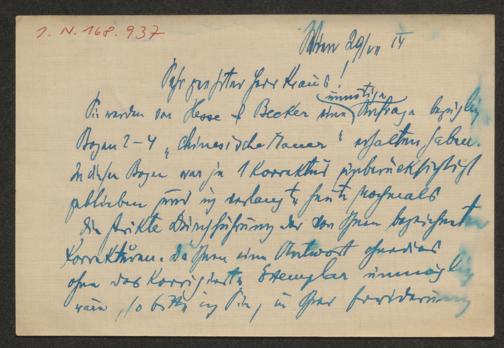 J. N. 168.937
Wien 29/VII 14
Sehr geehrter Herr Kraus!
Sie werden von Hesse & Becker eine unnötige Anfrage bezüglich
Bogen 2–4 „Chinesische Mauer“ erhalten haben.
In diesen Bogen war je 1 Korrektur unberücksichtigt
geblieben und ich verlangte heute nochmals
die strikte Durchführung der von Ihnen bezeichneten
Korrekturen. Da Ihnen eine Antwort ohnedies
ohne das korrigierte Exemplar unmöglich
wäre, so bitte ich Sie, in Ihrer Erwiderung